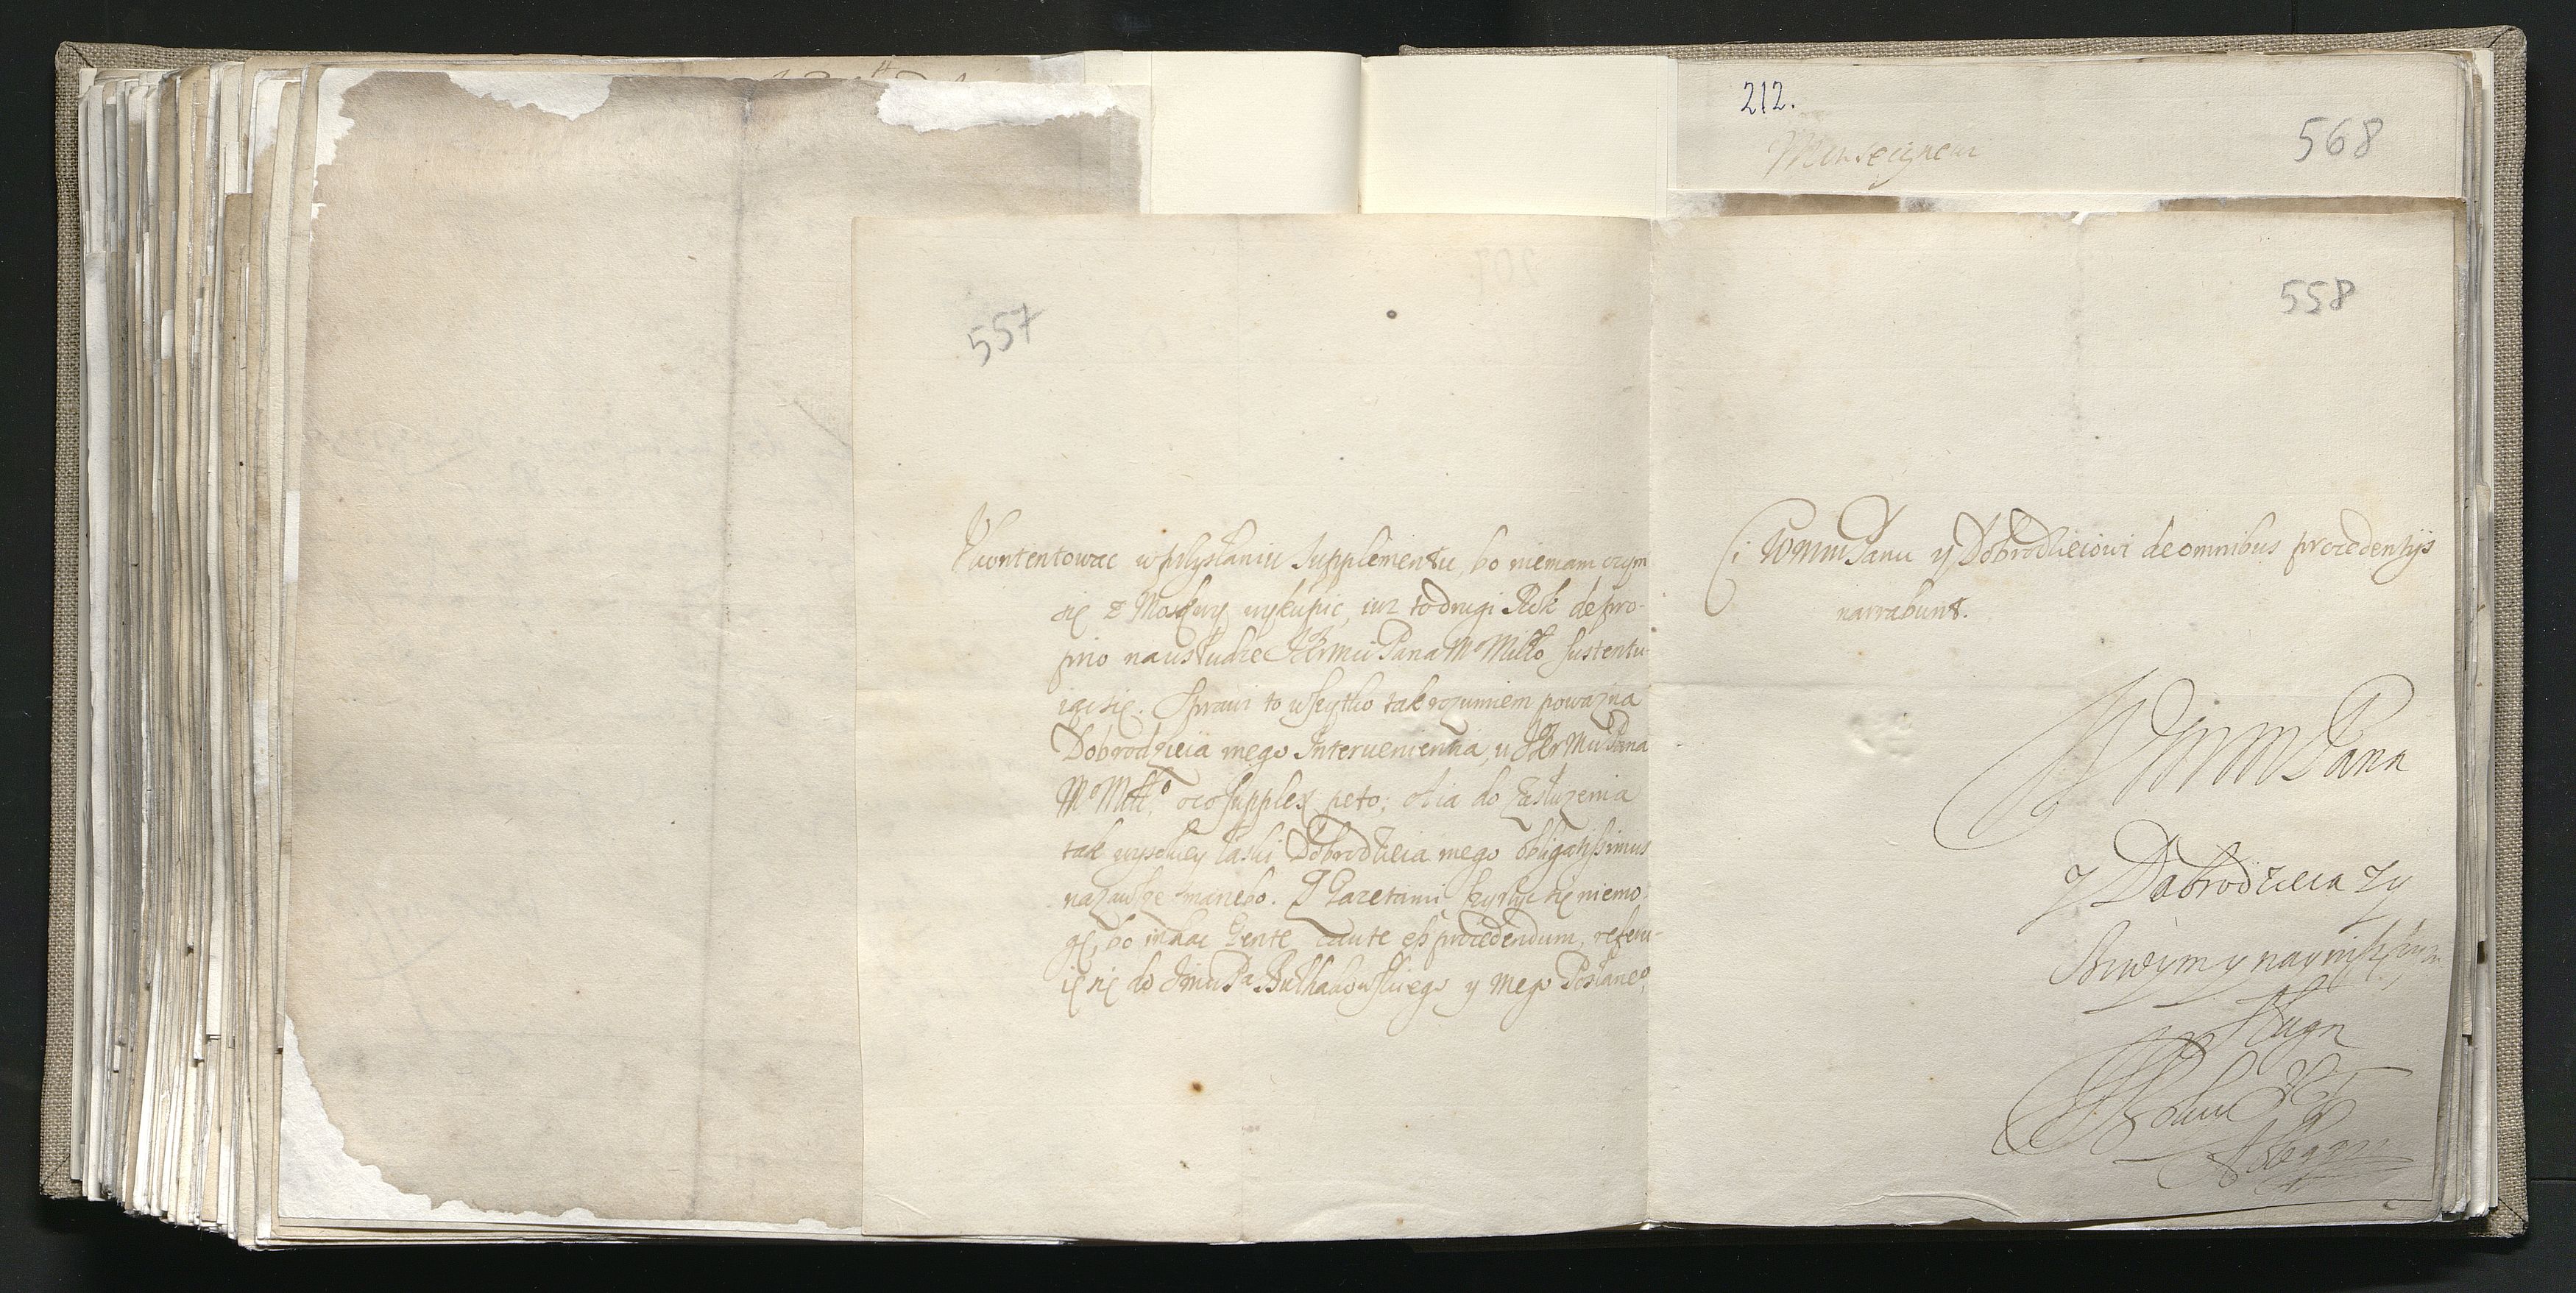 212.
Monseigneur
568
557
Ukontentowac w przysłaniu supplementu, bo niemam czym
się z Moskwy wykupic, iuz to drugi Rok de pro-
prio na usłudze JKrMci Pana Mo Miłło sustentu-
iąc się. Sprawi to wszytko tak rozumiem powazna
Dobrodzieia mego Interueniencia, u JKrMci Pana
Mo Miłło. oco supplex peto; a ia do zasłuzenia
tak wysokiey łaski Dobrodzieia mego obligatissimus
nazawsze manebo. Z Gazetami szyrzyc się niemo-
gę, bo in hac Gente caute est procedendum, referu-
ię się do JmciPa Buchahowskiego y mego Posłanca,
558
Ci WMMPanu y Dobrodzieiowi de omnibus procedentijs
narrabunt.
WMMMPana
y Dobrodzieia Zy
czliwym y nayniższym
Sługą